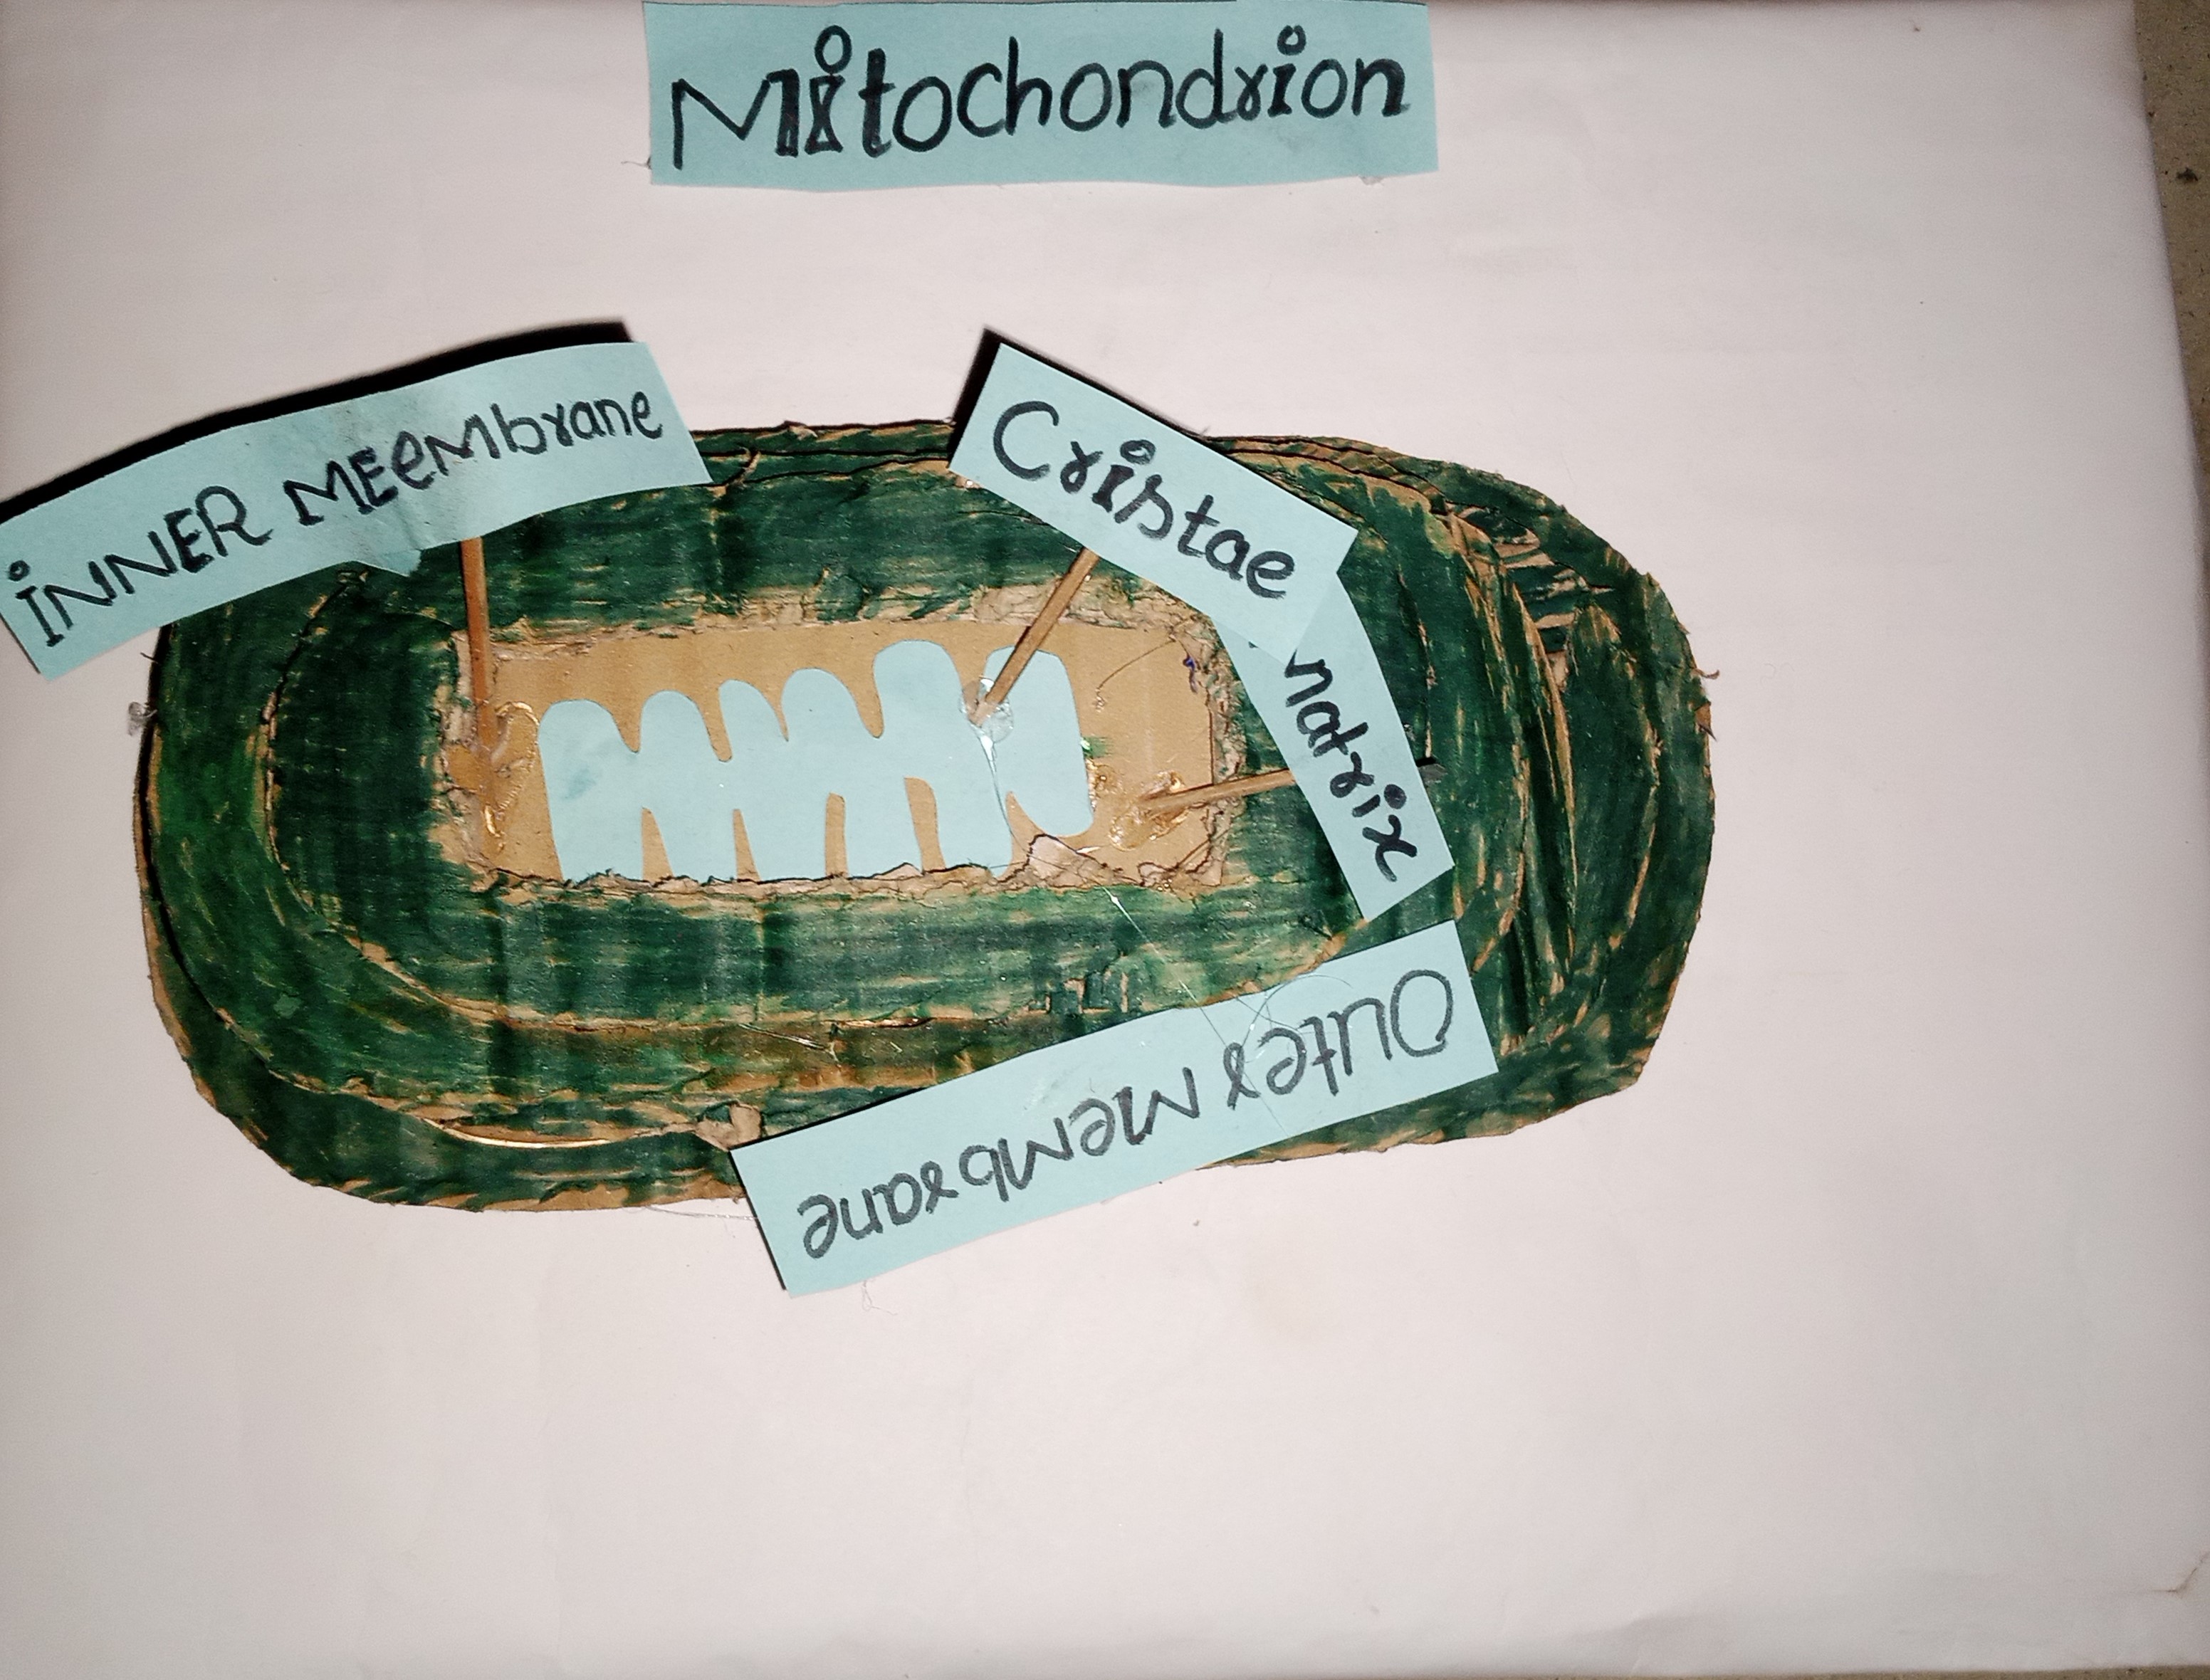 Mitochondrion
iNNER MEembrane
Cristae
matrix
Outer Membrane